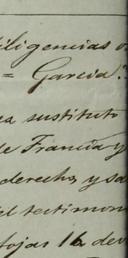 iligencias o
= Garcia?
a sustituto
de Francia y
derecho, y sa
el testimon
fojas 16 dev